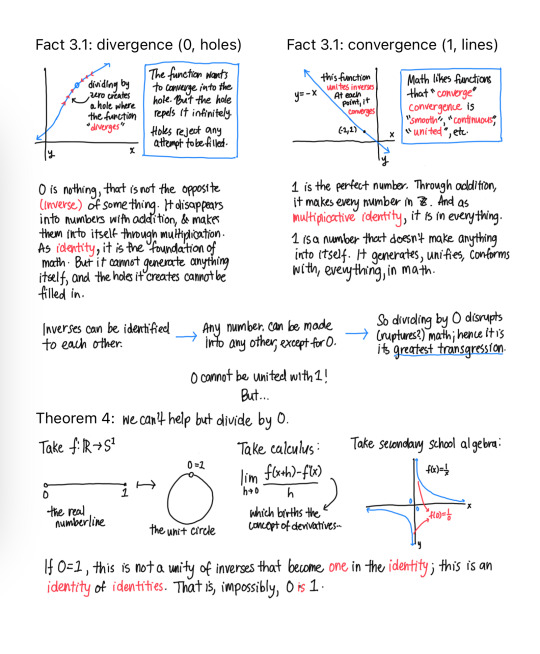 Fact 3.1: divergence (0, holes)
Fact 3.1: convergence (1, lines)
dividing by
zero creates
a hole where
the function
"diverges"
x
y
The function wants
to converge into the
hole. But the hole
repels it infinitely.
Holes reject any
attempt to be filled.
y=-x
this function
unites inverses
At each
point, it
converges
(-1,1)
x
y
Math likes functions
that "converge"
Convergence is
"smooth", "continuous",
"united", etc.
0 is nothing, that is not the opposite
(inverse) of something. It disappears
into numbers with addition, & makes
them into itself through multiplication.
As identity, it is the foundation of
math. But it cannot generate anything
itself, and the holes it creates cannot be
filled in.
1 is the perfect number. Through addition,
it makes every number in ℤ. And as
multiplicative identity, it is in everything.
1 is a number that doesn't make anything
into itself. It generates, unifies, conforms
with, everything, in math.
Inverses can be identified
to each other.
Any number can be made
into any other, except for 0.
So dividing by 0 disrupts
(ruptures?) math; hence it is
its greatest transgression.
0 cannot be united with 1!
But...
Theorem 4: we can't help but divide by 0.
Take f: ℝ→S¹
0
1
the real
numberline
0=1
the unit circle
Take calculus:
lim f(x+h)-f(x)
h→0 h
which births the
concept of derivatives...
Take secondary school algebra:
f(x)=1/x
0
x
f(0)=1/0
y
If 0=1, this is not a unity of inverses that become one in the identity; this is an
identity of identities. That is, impossibly, 0 is 1.